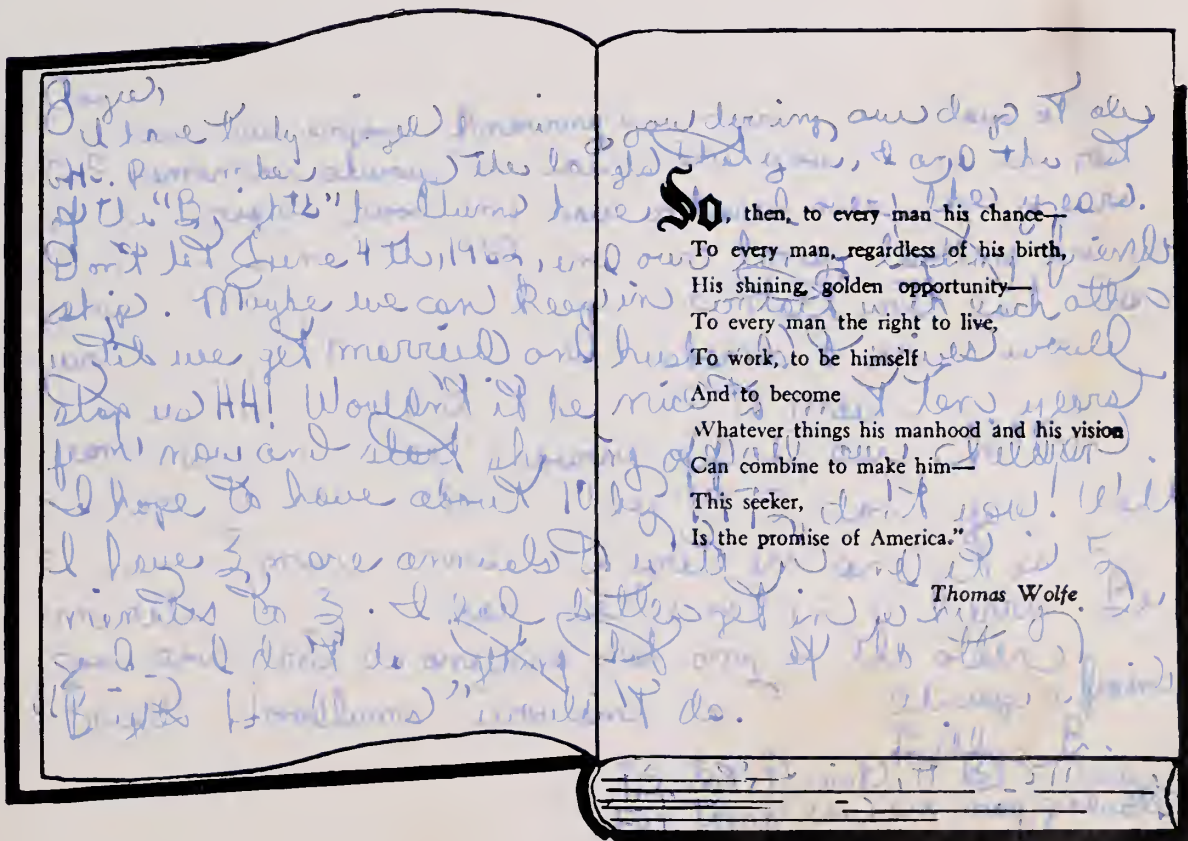 Joyce,
I have truly enjoyed knowing you during our days at ole
GHS. Remember always the laughs that you, I and the rest
of the "Brights" hoodlums have the years.
Don't let June 4th, 1962, end our friend
ship. Maybe we can keep in contact with each other
until we get married and husbands would
stop us HA! Wouldn't it be nice to meet ten years
from now and start showing off all our children.
I hope to have about 10 by don't you! Well
I have 3 more annuals to write in and it is 5
minutes to 3. I had better get in a hurry. Be
good and don't do anything that any of the other
"Brights Hoodlums" wouldn't do.
So, then, to every man his chance—
To every man, regardless of his birth,
His shining, golden opportunity—
To every man the right to live,
To work, to be himself
And to become
Whatever things his manhood and his vision
Can combine to make him—
This seeker,
Is the promise of America."
Thomas Wolfe